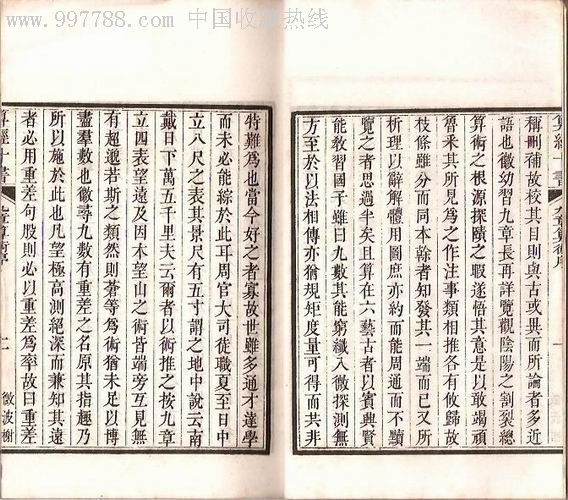 www.997788.com 中国收藏热线
算經十書 九章算術序 一
稱刪補故校其目則與古或異而所論者多近
語也徽幼習九章長再詳覽觀陰陽之割裂總
算術之根源探賾之暇遂悟其意是以敢竭頑
魯采其所見爲之作注事類相推各有攸歸故
枝條雖分而同本榦者知發其一端而已又所
析理以辭解體用圖庶亦約而能周通而不黷
覽之者思過半矣且算在六藝古者以賓興賢
能教習國子雖曰九數其能窮纖入微探測無
方至於以法相傳亦猶規矩度量可得而共非
特難爲也當今好之者寡故世雖多通才達學
而未必能綜於此耳周官大司徒職夏至日中
立八尺之表其景尺有五寸謂之地中說云南
戴日下萬五千里夫云爾者以術推之按九章
立四表望遠及因木望山之術皆端旁互見無
有超邈若斯之類然則蒼等爲術猶未足以博
盡羣數也徽尋九數有重差之名原其指趣乃
所以施於此也凡望極高測絕深而兼知其遠
者必用重差句股則必以重差爲率故曰重差
算經十書 九章算術序 二 微波榭